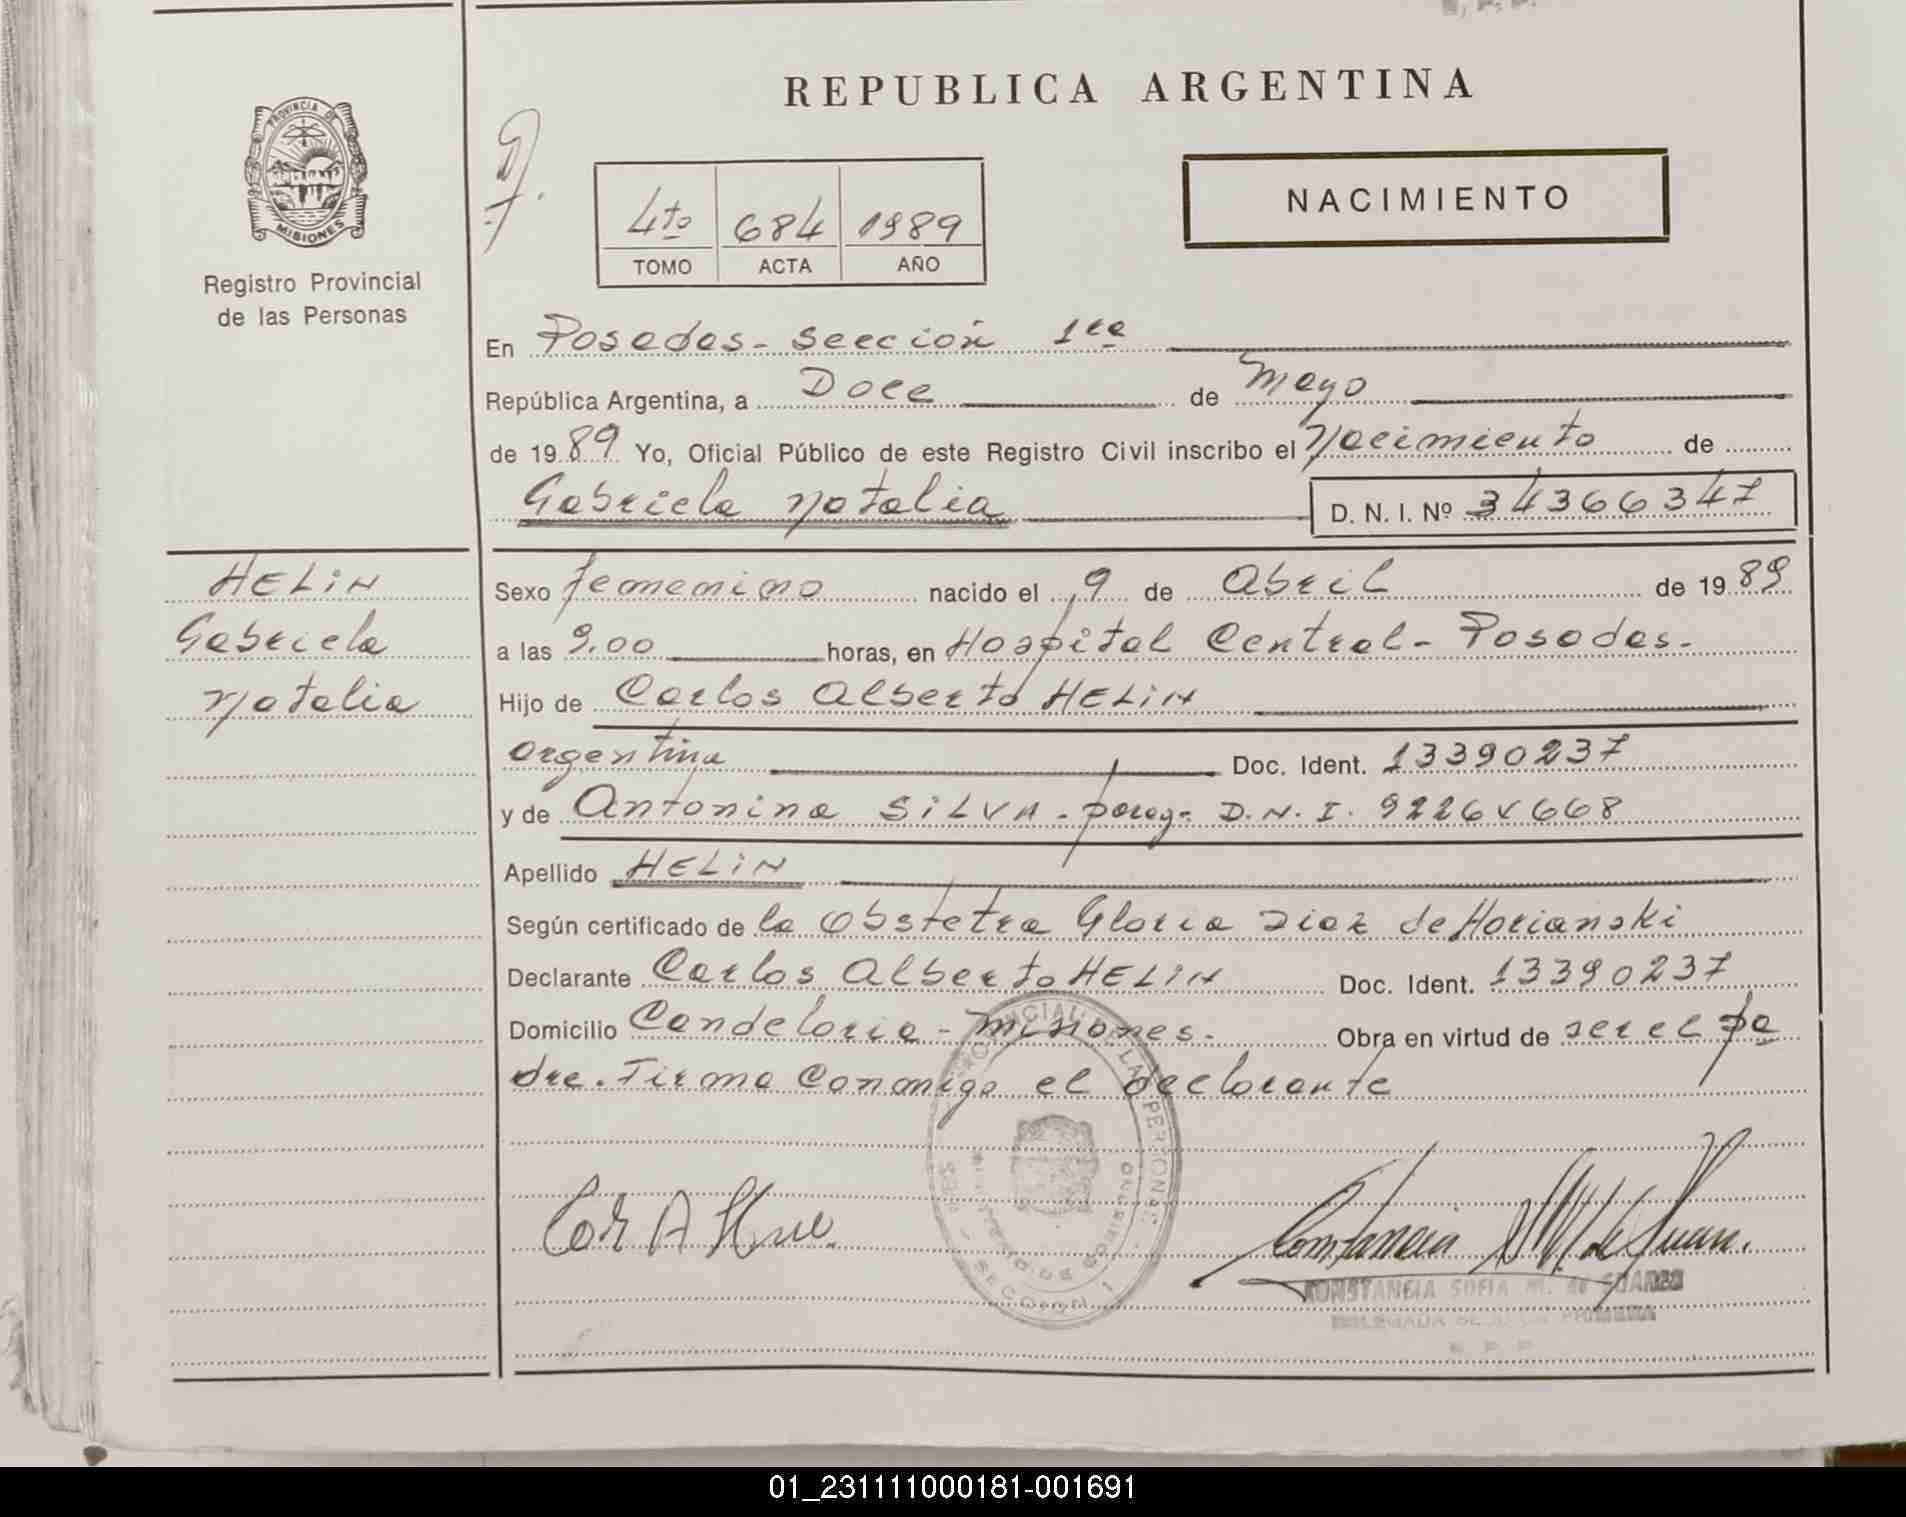 REPUBLICA ARGENTINA
PROVINCIA DE
MISIONES
Registro Provincial
de las Personas
4to 684 1989
TOMO ACTA AÑO
NACIMIENTO
En Posadas - sección 1ra
República Argentina, a Doce de Mayo
de 1989 Yo, Oficial Público de este Registro Civil inscribo el Nacimiento de
Gabriela Natalia D. N. I. Nº 34366347
HELiN
Gabriela
Natalia
Sexo femenino nacido el 9 de Abril de 1989
a las 9.00 horas, en Hospital Central - Posadas -
Hijo de Carlos Alberto HELiN
Argentina Doc. Ident. 13390237
y de Antonina SiLVA - parag- D.N.I.
Apellido HELiN
Según certificado de la Obstetra Gloria Diaz de Horianski
Declarante Carlos Alberto HELiN Doc. Ident. 13390237
Domicilio Candelaria - Misiones. Obra en virtud de ser el pa
dre. Firma Conmigo el declarante
PROVINCIAL DE LAS PERSONAS
MINISTERIO DE GOBIERNO
SECCION 1
CONSTANCIA SOFIA M. de SUAREZ
DELEGADA SECCION PRIMERA
01_231111000181-001691